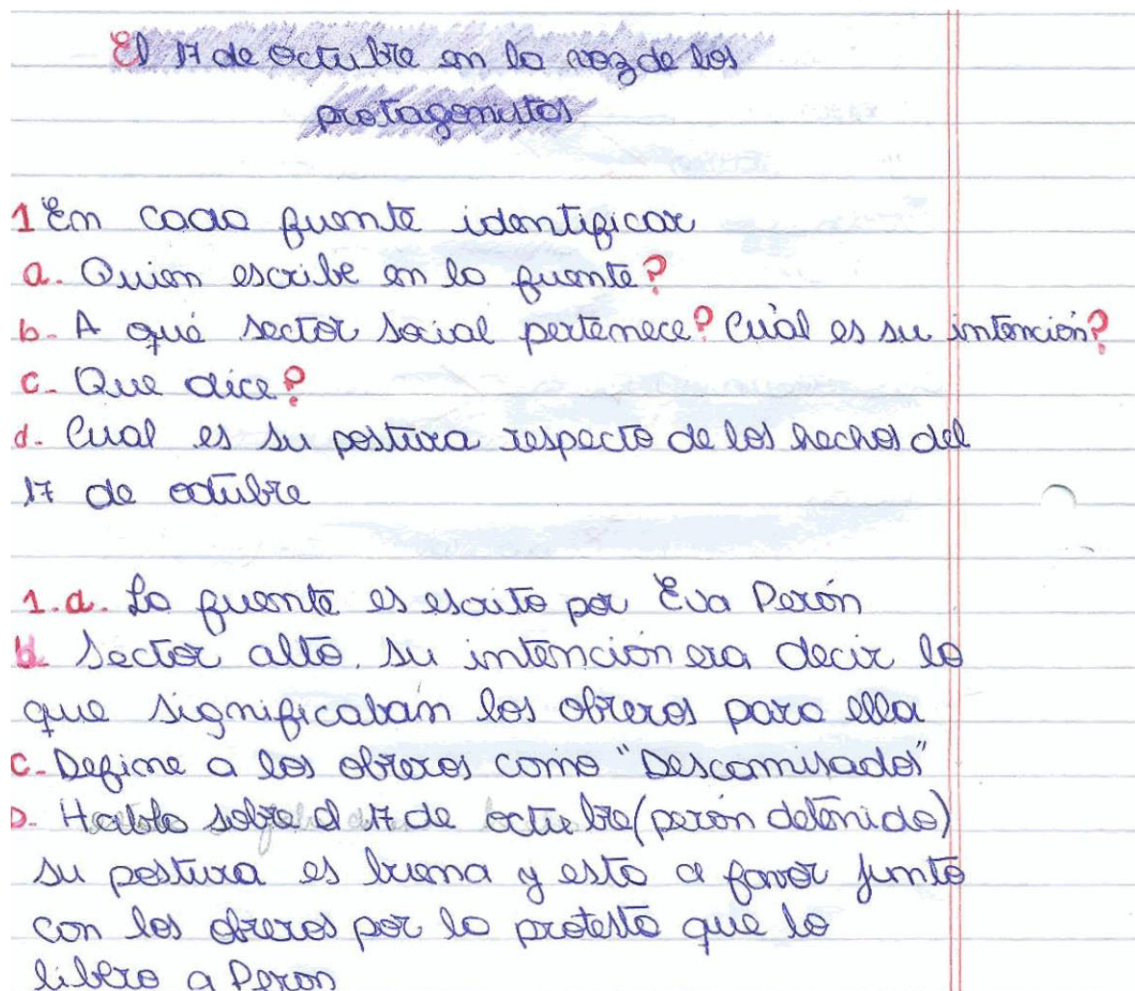 El 17 de octubre en la voz de los
protagonistas
1 En cada fuente identificar
a. Quien escribe en la fuente?
b. A qué sector social pertenece? Cuál es su intención?
c. Que dice?
d. Cual es su postura respecto de los hechos del
17 de octubre
1.a. La fuente es escrita por Eva Perón
b. Sector alto. su intención era decir lo
que significaban los obreros para ella
c. Define a los obreros como "Descamisados"
D. Habla sobre el 17 de octubre (perón detenido)
su postura es buena y esta a favor junto
con los obreros por la protesta que lo
libero a Peron